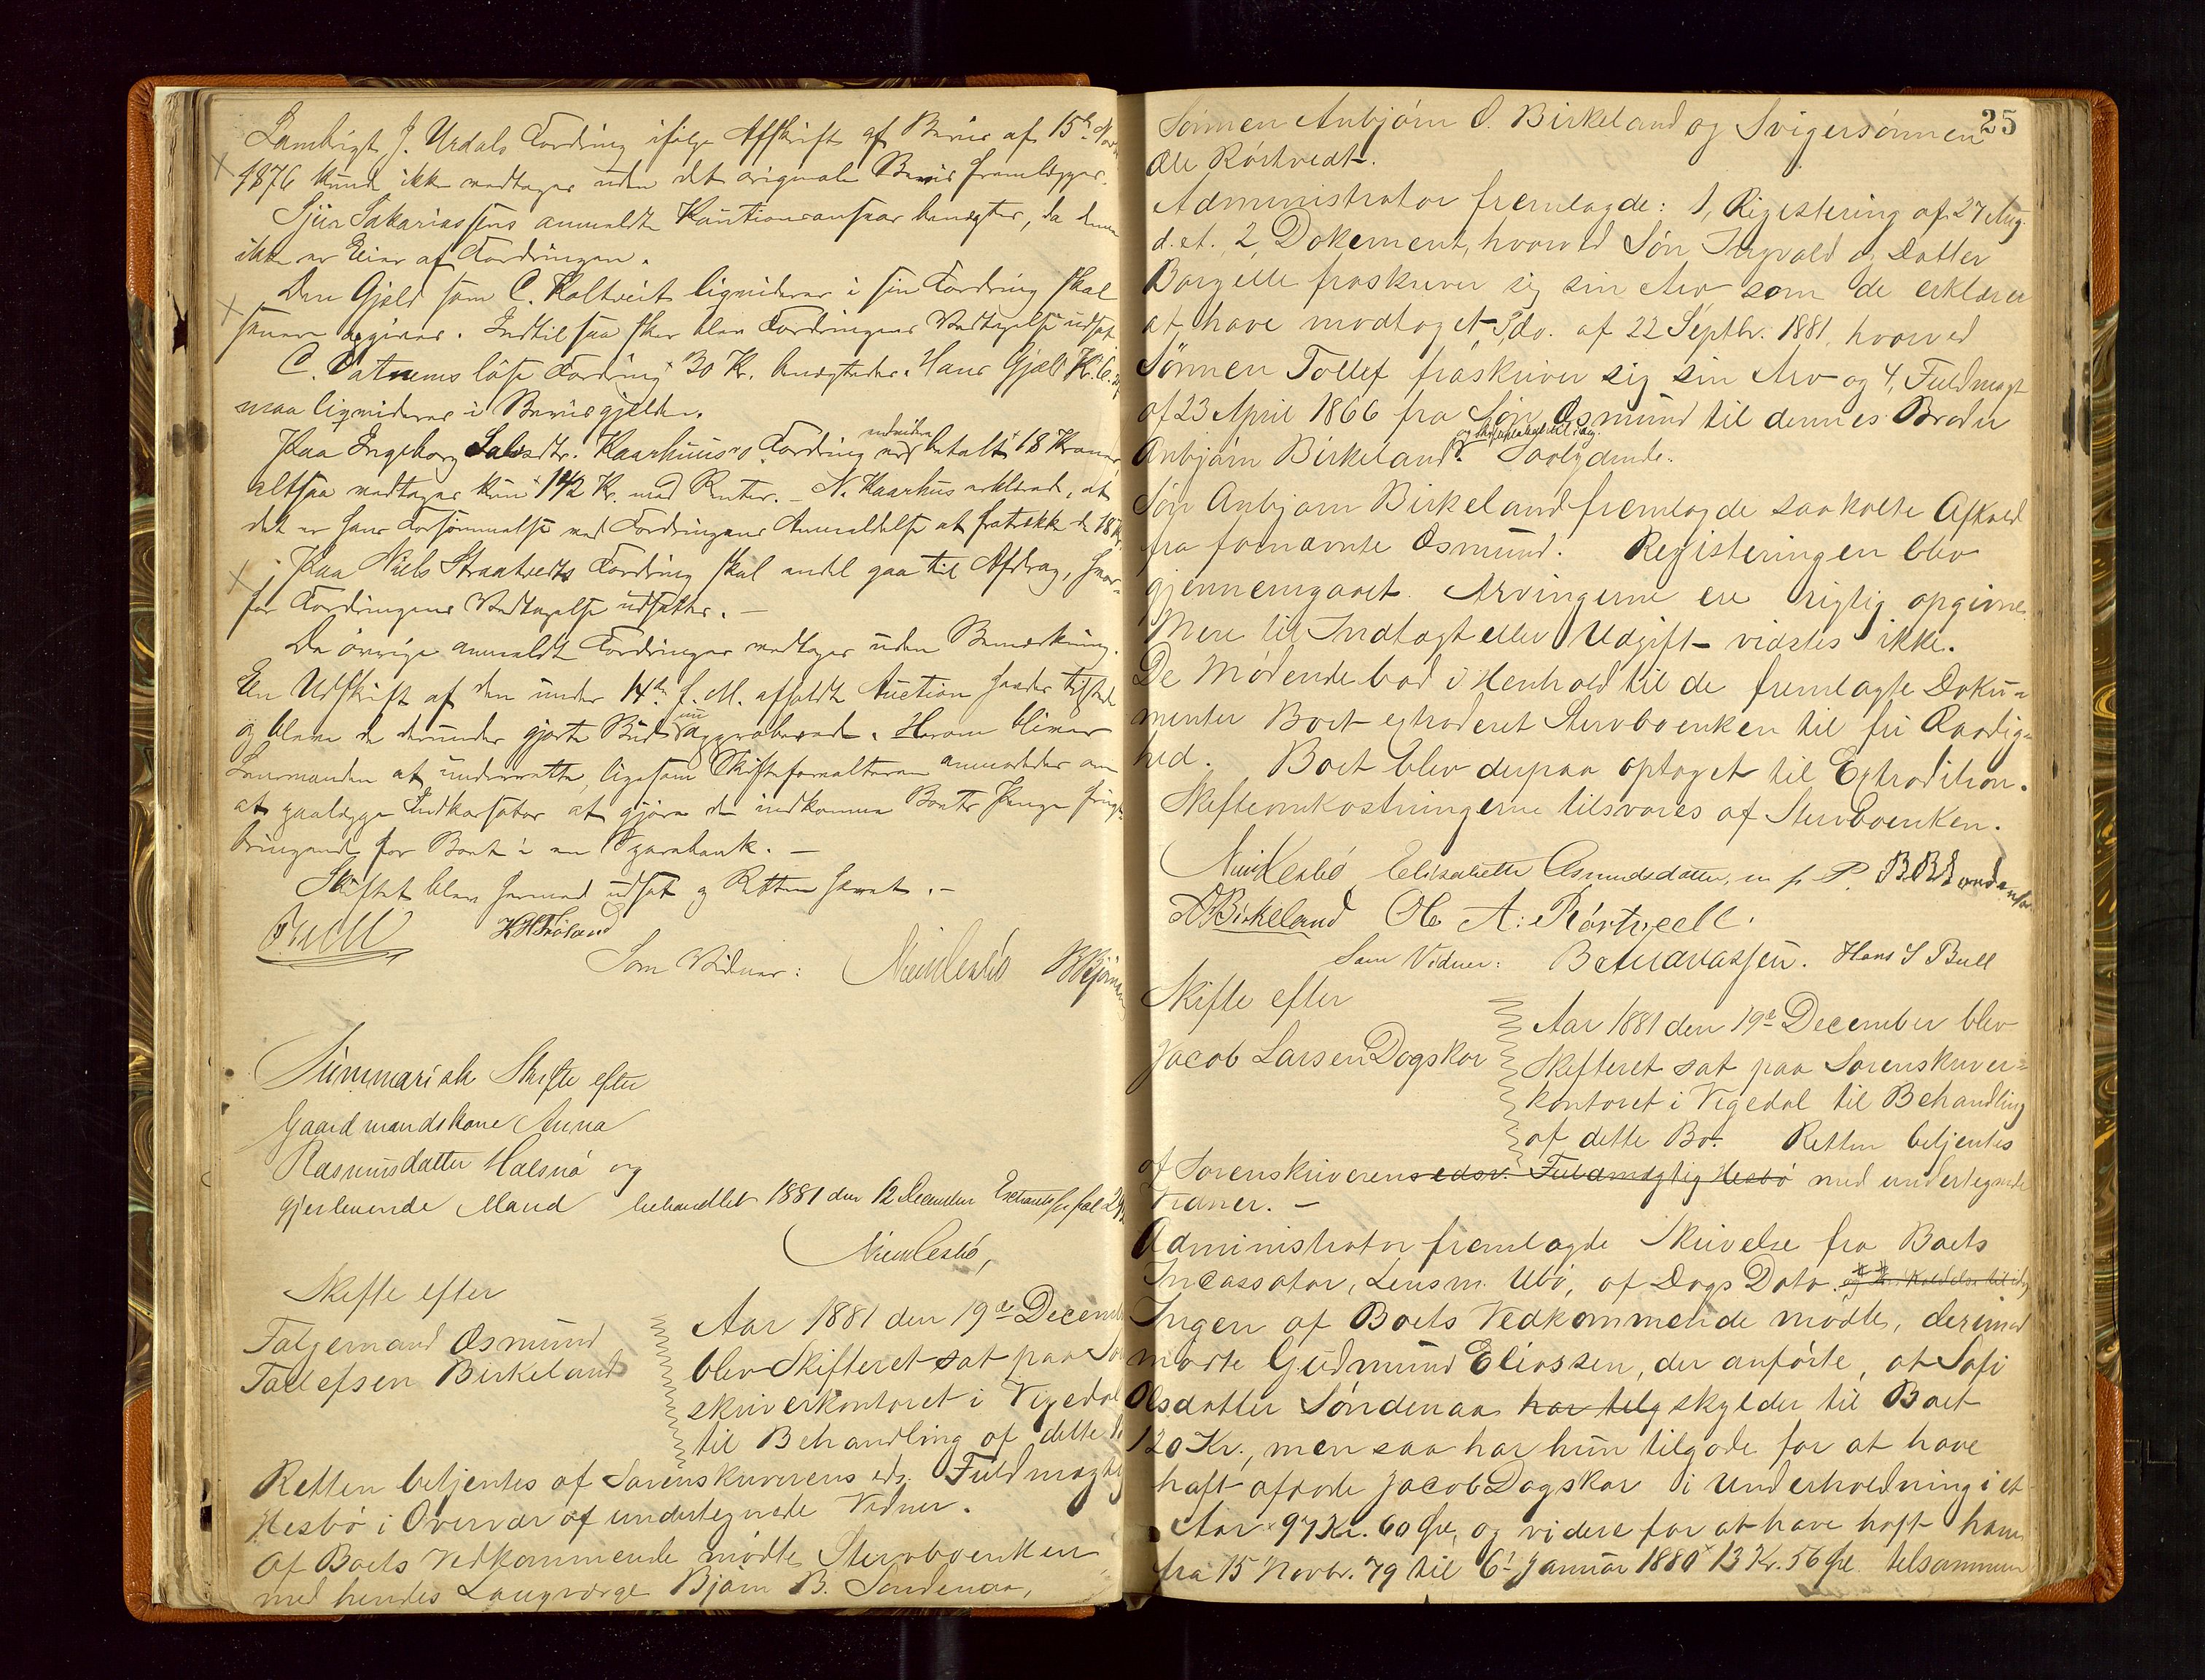 Lambrigt J. Urdals Fordring ifølge Afskrift af Bevis af 15de Novbr
1876 kunde ikke vedtages uden det originale Bevis fremlægges.
Sjur Sakariassens anmeldte Kautionsansvar benægtes, da denne
ikke er Eier af Fordringen.
Den Gjæld som C. Kaltveit liqviderer i sin Fordring skal
senere opgives. Indtil saa sker blev Fordringens Vedtagelse udsat.
C. Vatnems løse Fordring 30 Kr. benægtedes. Hans Gjæld
maa liqvideres i Bevisgjælden.
Paa Ingeborg Salvesdtr. Kaarhuus's Fordring er betalt 18 Kroner,
altsaa vedtages kun 142 Kr. med Renter. – N. Kaarhus erklærede, at
det er hans Forsømmelse ved Fordringens Anmeldelse at fratrække de 18 Kr.
Paa Niels Straatveits Fordring skal endel gaa til Afdrag, hvor-
for Fordringens Vedtagelse udsættes. –
De øvrige anmeldte Fordringer vedtages uden Bemærkning.
En Udskrift af den under 14de f. M. afholdte Auction havdes tilstede
og bleve de derunder gjorte Bud nu approberede. Herom bliver
Lensmanden at underrette, ligesom Skifteforvalteren anmodedes om
at paalægge Indkassator at gjøre de indkomne Boets Penge frugt-
bringende for Boet i en Sparebank. –
Skiftet blev hermed udsat og Retten hævet. –
Som Vidner:
Summarisk Skifte efter
Gaardmandskone Anna
Rasmusdatter Halsnø og
gjenlevende Mand behandlet 1881 den 12 December
Skifte efter
Følgemand Osmund
Tollefsen Birkeland
Aar 1881 den 19de Decemb
blev Skifteret sat paa Sor
skriverkontoret i Vigedal
til Behandling af dette
Retten betjentes af Sorenskriverens eds. Fuldmægtig
Hesbø i Overvær af undertegnede Vidner.
Af Boets Vedkommende mødte Stervboenken
med hendes Laugværge Bjørn B. Søndenaa,
25
Sønnen Anbjørn O. Birkeland og Svigersønnen
Ole Rørtvedt.
Administrator fremlagde: 1, Registering af 27 Aug.
d.A. 2, Dokement, hvorved Søn Ingvald og Datter
Borgille fraskriver sig sin Arv, som de erklærer
at have modtaget 3, do. af 22 Septbr. 1881, hvorved
Sønnen Tollef fraskriver sig sin Arv og 4, Fuldmagt
af 23 April 1866 fra Søn Osmund til dennes Broder
Anbjørn Birkeland. Saalydende.
Søn Anbjørn Birkeland fremlagde saakalte Afkald
fra fornævnte Osmund. Registeringen blev
gjennemgaaet. Arvingerne ere rigtig opgivne.
Mere til Indtægt eller Udgift vidstes ikke.
De Mødende bad i Henhold til de fremlagte Doku-
menter Boet extraderet Stervboenken til fri Raadig-
hed. Boet blev derpaa optaget til Extradition.
Skifteomkostningerne tilsvares af Stervboenken.
Elisabette Osmundsdatter, m. p. P.
ABirkeland Ole A: Rørtvedt.
Som Vidner: B Andreassen. Hans S Bull
Skifte efter
Jacob Larsen Dagskar
Aar 1881 den 19de December blev
Skifteret sat paa Sorenskriver-
kontoret i Vigedal til Behandling
af dette Bo. Retten betjentes
af Sorenskriveren edsv. Fuldmægtig Hesbø med undertegnede
Vidner. –
Administrator fremlagde Skrivelse fra Boets
Incassator, Lensm. Ubø, af Dags Dato.
Ingen af Boets Vedkommende mødte, derimod
mødte Gudmund Eliassen, der anførte, at Sofi
Olsdatter Søndenaa har tilg skylder til Boet
120 Kr., men saa har hun tilgode for at have
haft afdøde Jacob Dagskar i Underholdning i et
Aar 97 Kr. 60 Øre, og videre for at have haft ham
fra 15 Novbr. 79 til 6te Januar 1880 13 Kr. 56 Øre tilsammen